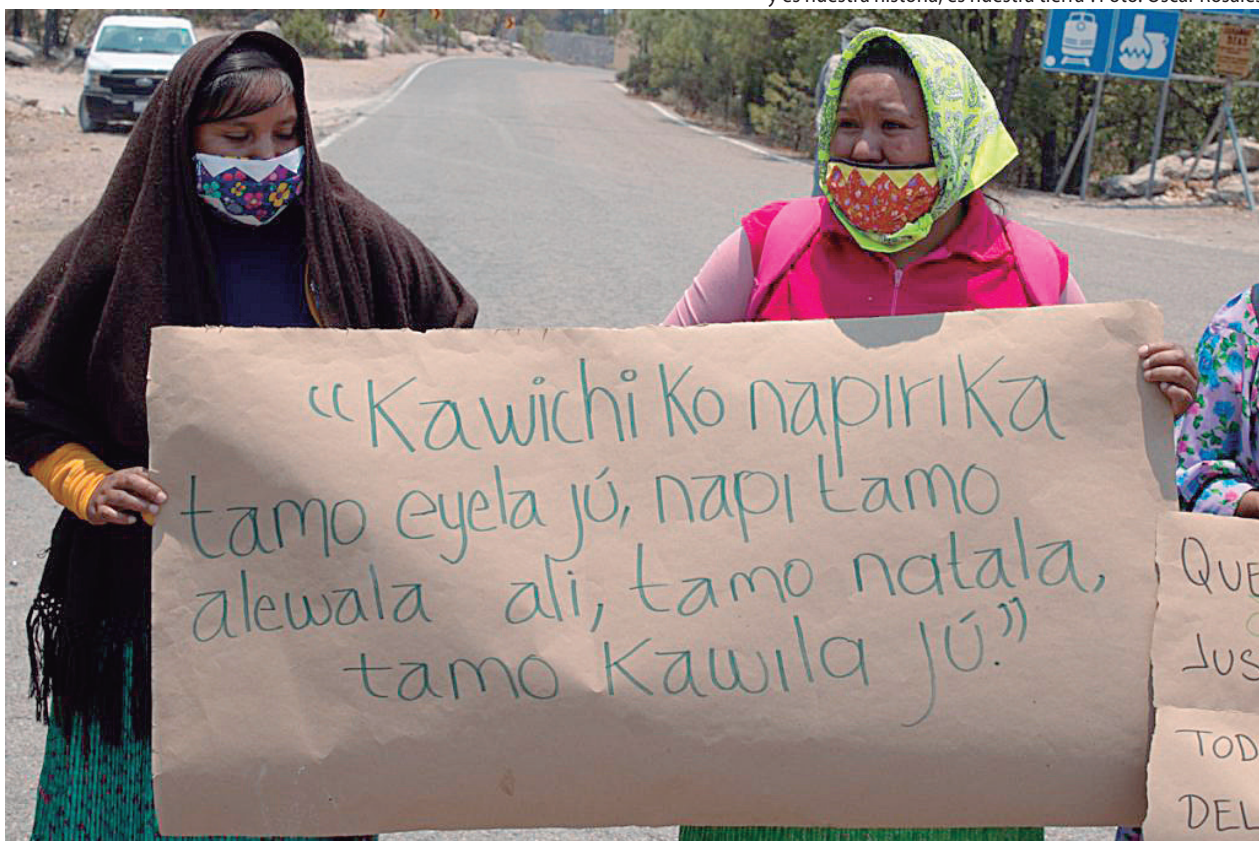 y es nuestra historia, es nuestra tierra". Foto: Oscar Rosales
"Kawichi ko napirika
tamo eyela jú, napi tamo
alewala ali, tamo natala,
tamo kawila jú."
QUE
JUS
TOD
DEL